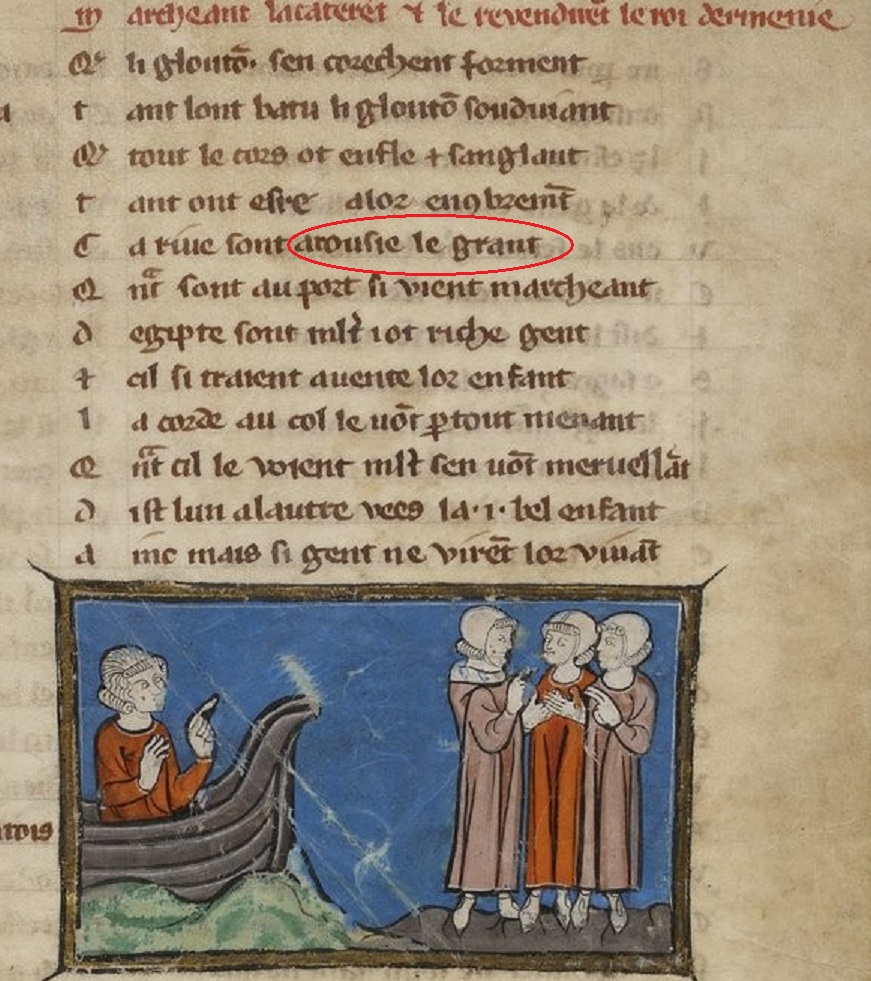 m archeant lacaterēt ⁊ le revenduēt le roi dermenie
Q' li gloutō. sen corechent forment
t ant lont batu li gloutō souduiant
Q' tout le cors ot enfle ⁊ sanglant
t ant ont esre alor
a riue sont arousie le grant
Q nᵃt sont au port si vient marcheant
d egipte sont ml't iot riche gent
⁊ cil si traient auente lor enfant
l a corde au col le uōt ꝑtout menant
Q nᵃt cil le voient ml't sen uōt meruellāt
d ist lun alautre vees la .i. bel enfant
a inc mais si gent ne virēt lor viuāt